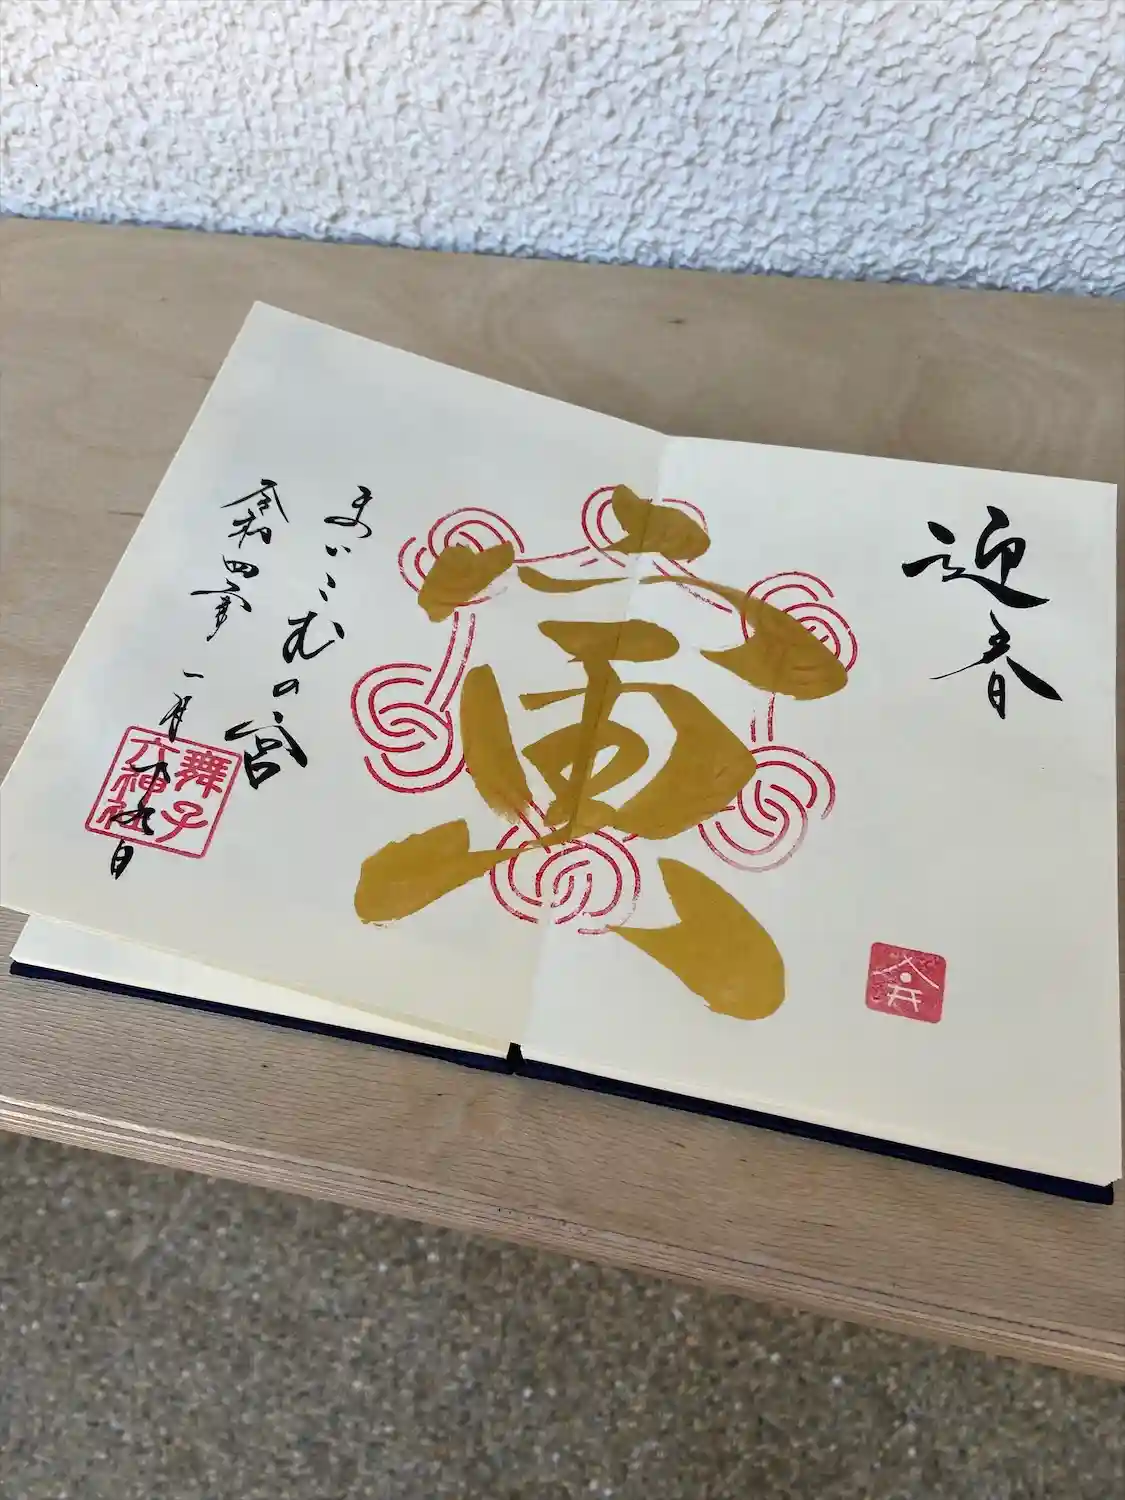 迎春
寅
まいこむの宮
令和四年 一月十九日
舞子
六神社